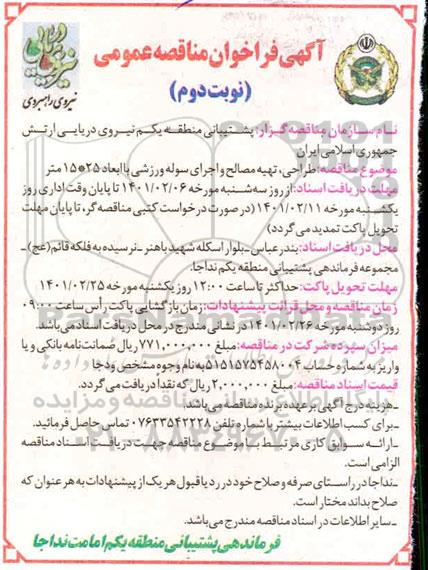 آگهی فراخوان مناقصه عمومی
(نوبت دوم)
نیروی راهبردی
نام سازمان مناقصه گزار: پشتیبانی منطقه یکم نیروی دریایی ارتش
جمهوری اسلامی ایران
موضوع مناقصه: طراحی، تهیه مصالح و اجرای سوله ورزشی با ابعاد ۲۵*۱۵ متر
مهلت دریافت اسناد: از روز سه شنبه مورخه ۱۴۰۱/۰۲/۰۶ تا پایان وقت اداری روز
یکشنبه مورخه ۱۴۰۱/۰۲/۱۱ (در صورت درخواست کتبی مناقصه گر، تا پایان مهلت
تحویل پاکت تمدید می گردد)
محل دریافت اسناد: بندرعباس-بلوار اسکله شهید باهنر-نرسیده به فلکه قائم(عج)-
مجموعه فرماندهی پشتیبانی منطقه یکم نداجا.
مهلت تحویل پاکت: حداکثر تا ساعت ۱۲:۰۰ روز یکشنبه مورخه ۱۴۰۱/۰۲/۲۵
زمان مناقصه و محل قرائت پیشنهادات: زمان بازگشایی پاکت، رأس ساعت ۰۹:۰۰
روز دوشنبه مورخه ۱۴۰۱/۰۲/۲۶ در نشانی مندرج در محل دریافت اسناد می باشد.
میزان سپرده شرکت در مناقصه: مبلغ ۷۷۱,۰۰۰,۰۰۰ ریال ضمانت نامه بانکی و یا
واریز به شماره حساب ۵۱۵۱۵۷۵۴۵۸۰۰۴ به نام وجوه مشخص ودجا
قیمت اسناد مناقصه: مبلغ ۲,۰۰۰,۰۰۰ ریال که نقداً دریافت می گردد.
-هزینه درج آگهی بر عهده برنده مناقصه می باشد.
-برای کسب اطلاعات بیشتر با شماره تلفن ۰۷۶۳۳۵۴۲۲۲۸ تماس حاصل فرمائید.
-ارائه سوابق کاری مرتبط با موضوع مناقصه جهت دریافت اسناد مناقصه
الزامی است.
-نداجا در راستای صرفه و صلاح خود در رد یا قبول هر یک از پیشنهادات به هر عنوان که
صلاح بداند مختار است.
-سایر اطلاعات در اسناد مناقصه مندرج می باشد.
فرماندهی پشتیبانی منطقه یکم امامت نداجا